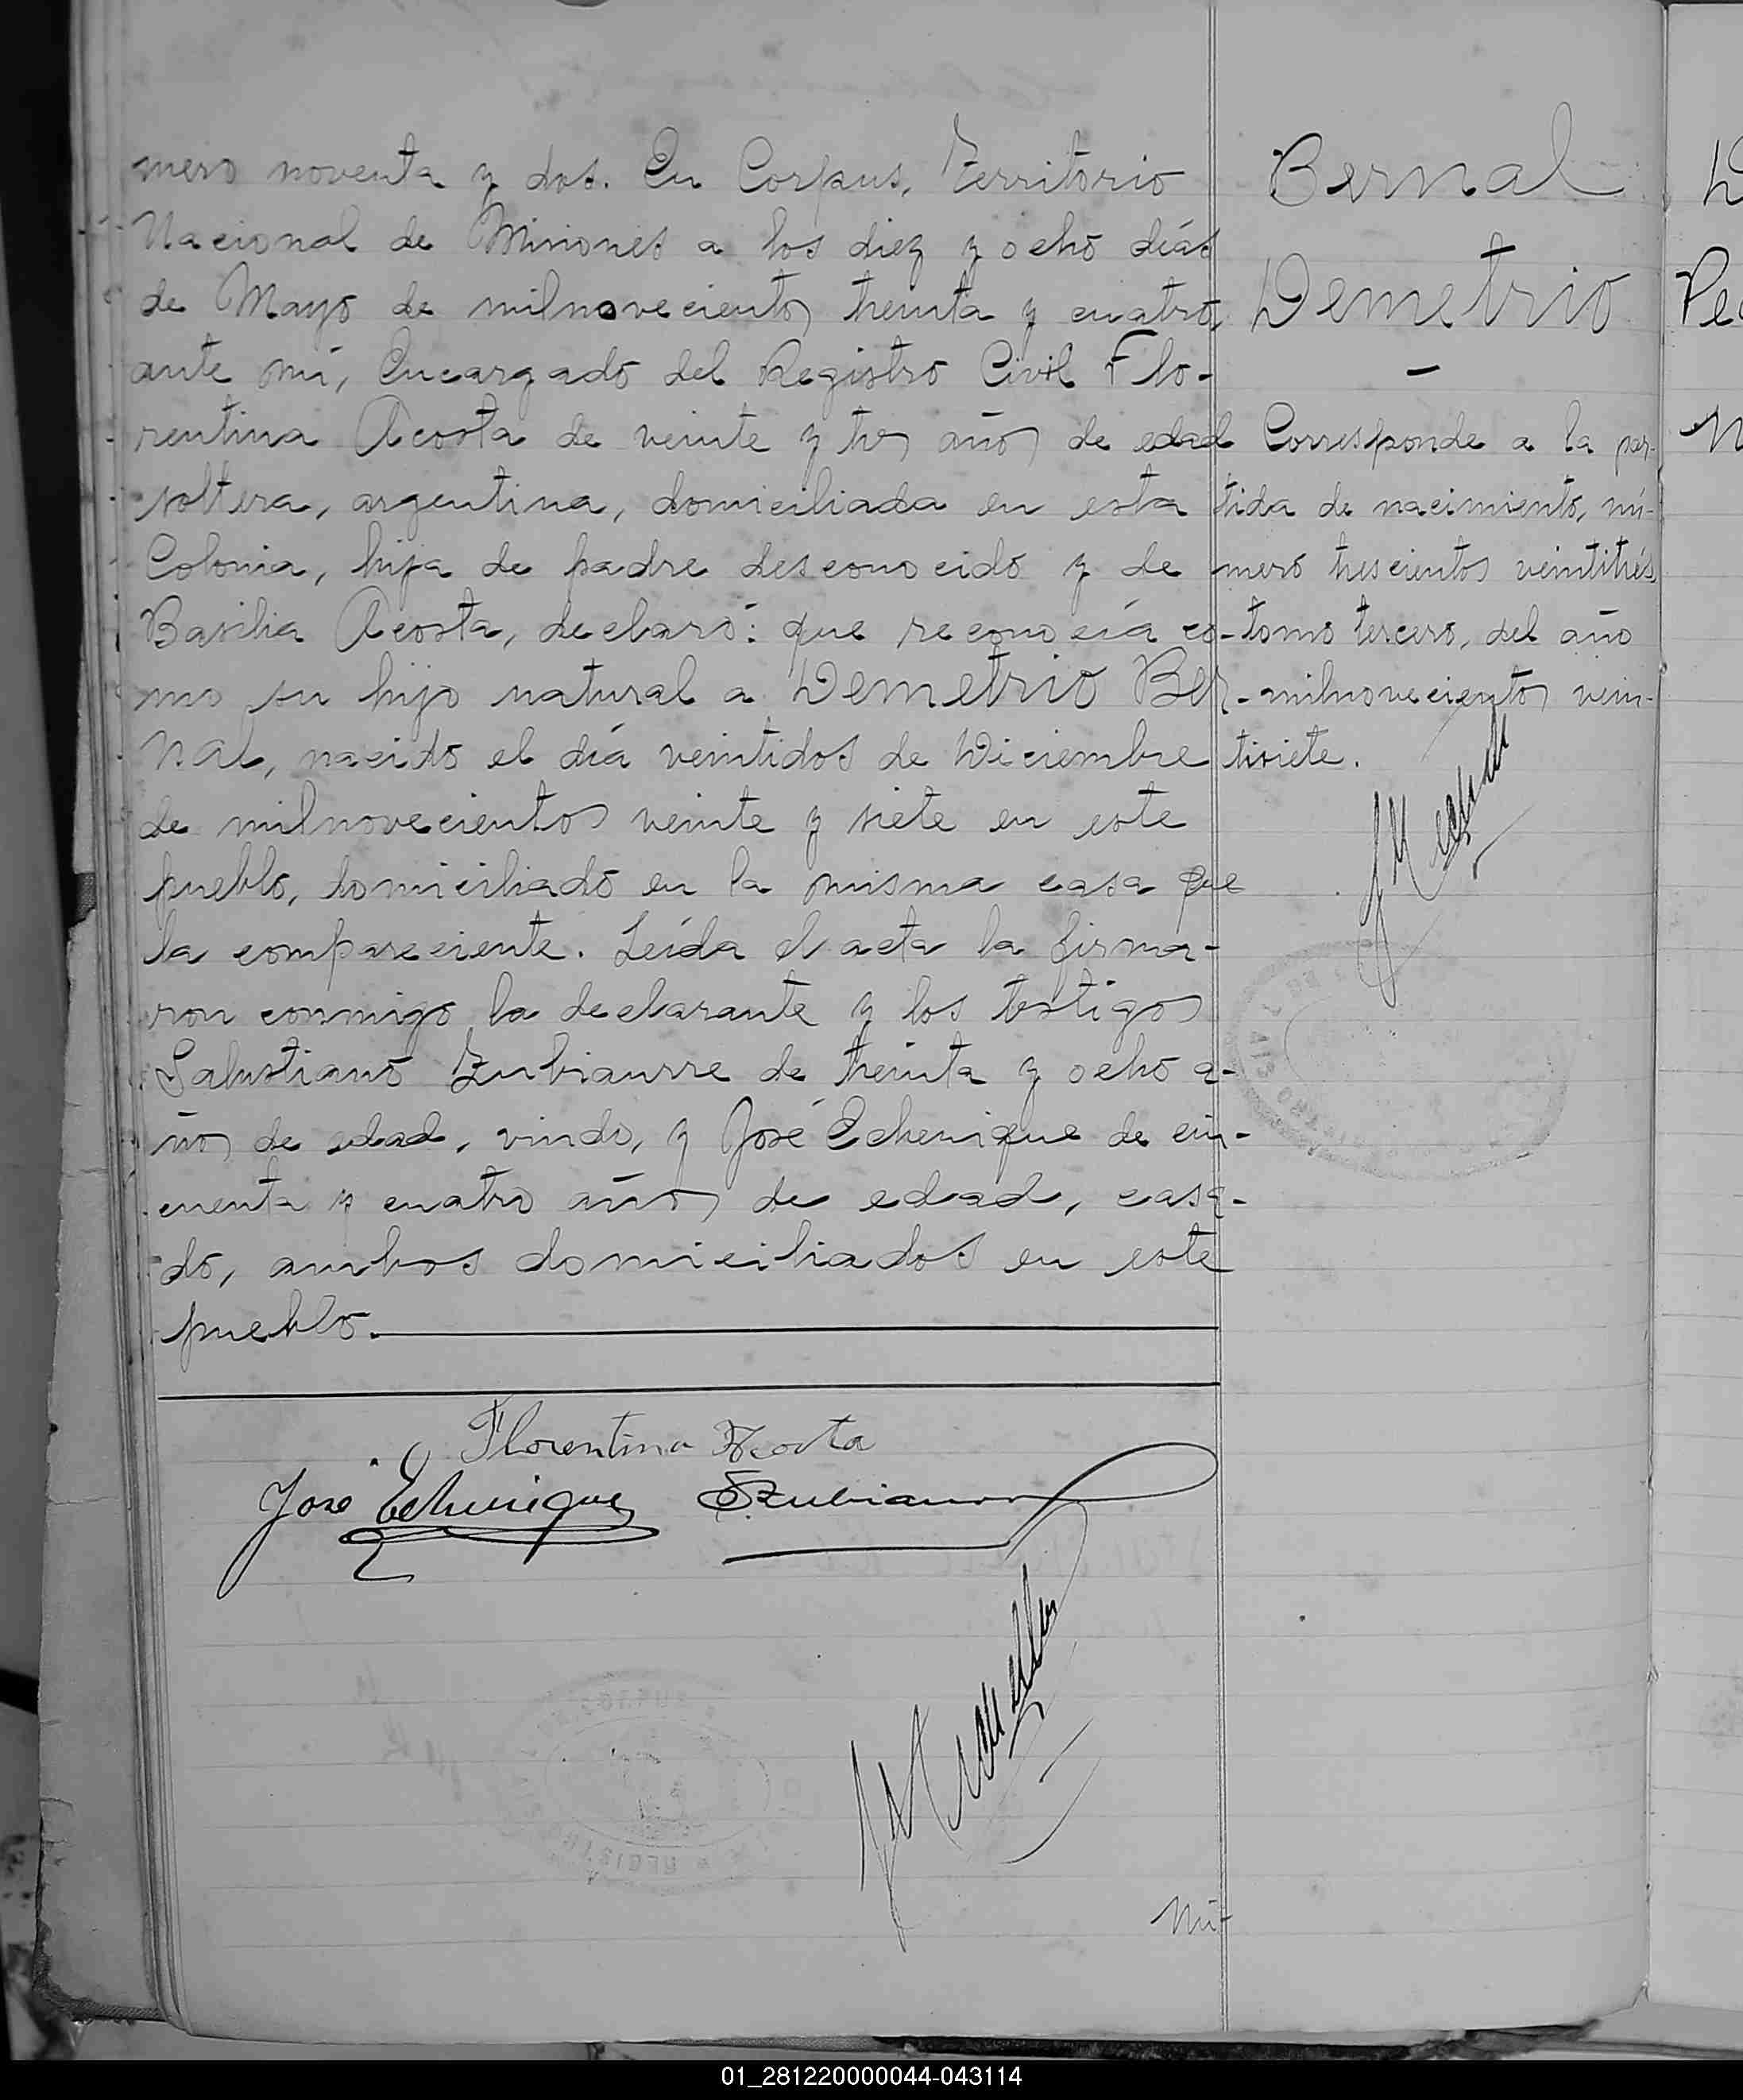 mero noventa y dos. En Corpus, Territorio
Nacional de Misiones a los diez y ocho días
de Mayo de milnovecientos treinta y cuatro,
ante mí, Encargado del Registro Civil Flo-
rentina Acosta de veinte y tres años de edad
soltera, argentina, domiciliada en esta
Colonia, hija de padre desconocido y de
Basilia Acosta, declaró: que reconocía co-
mo su hijo natural a Demetrio Ber-
nal, nacido el día veintidos de Diciembre
de milnovecientos veinte y siete en este
pueblo, domiciliado en la misma casa que
la compareciente. Leída el acta la firma-
ron conmigo la declarante y los testigos
Salustiano Zubiaurre de treinta y ocho a-
ños de edad, viudo, y José Echenique de cin-
cuenta y cuatro años de edad, casa-
do, ambos domiciliados en este
pueblo.
Florentina Acosta
José Echenique
Nú-
Bernal
Demetrio
-
Corresponde a la par-
tida de nacimiento, nú-
mero trescientos veintitrés
tomo tercero, del año
milnovecientos vein-
tisiete.
01_281220000044-043114